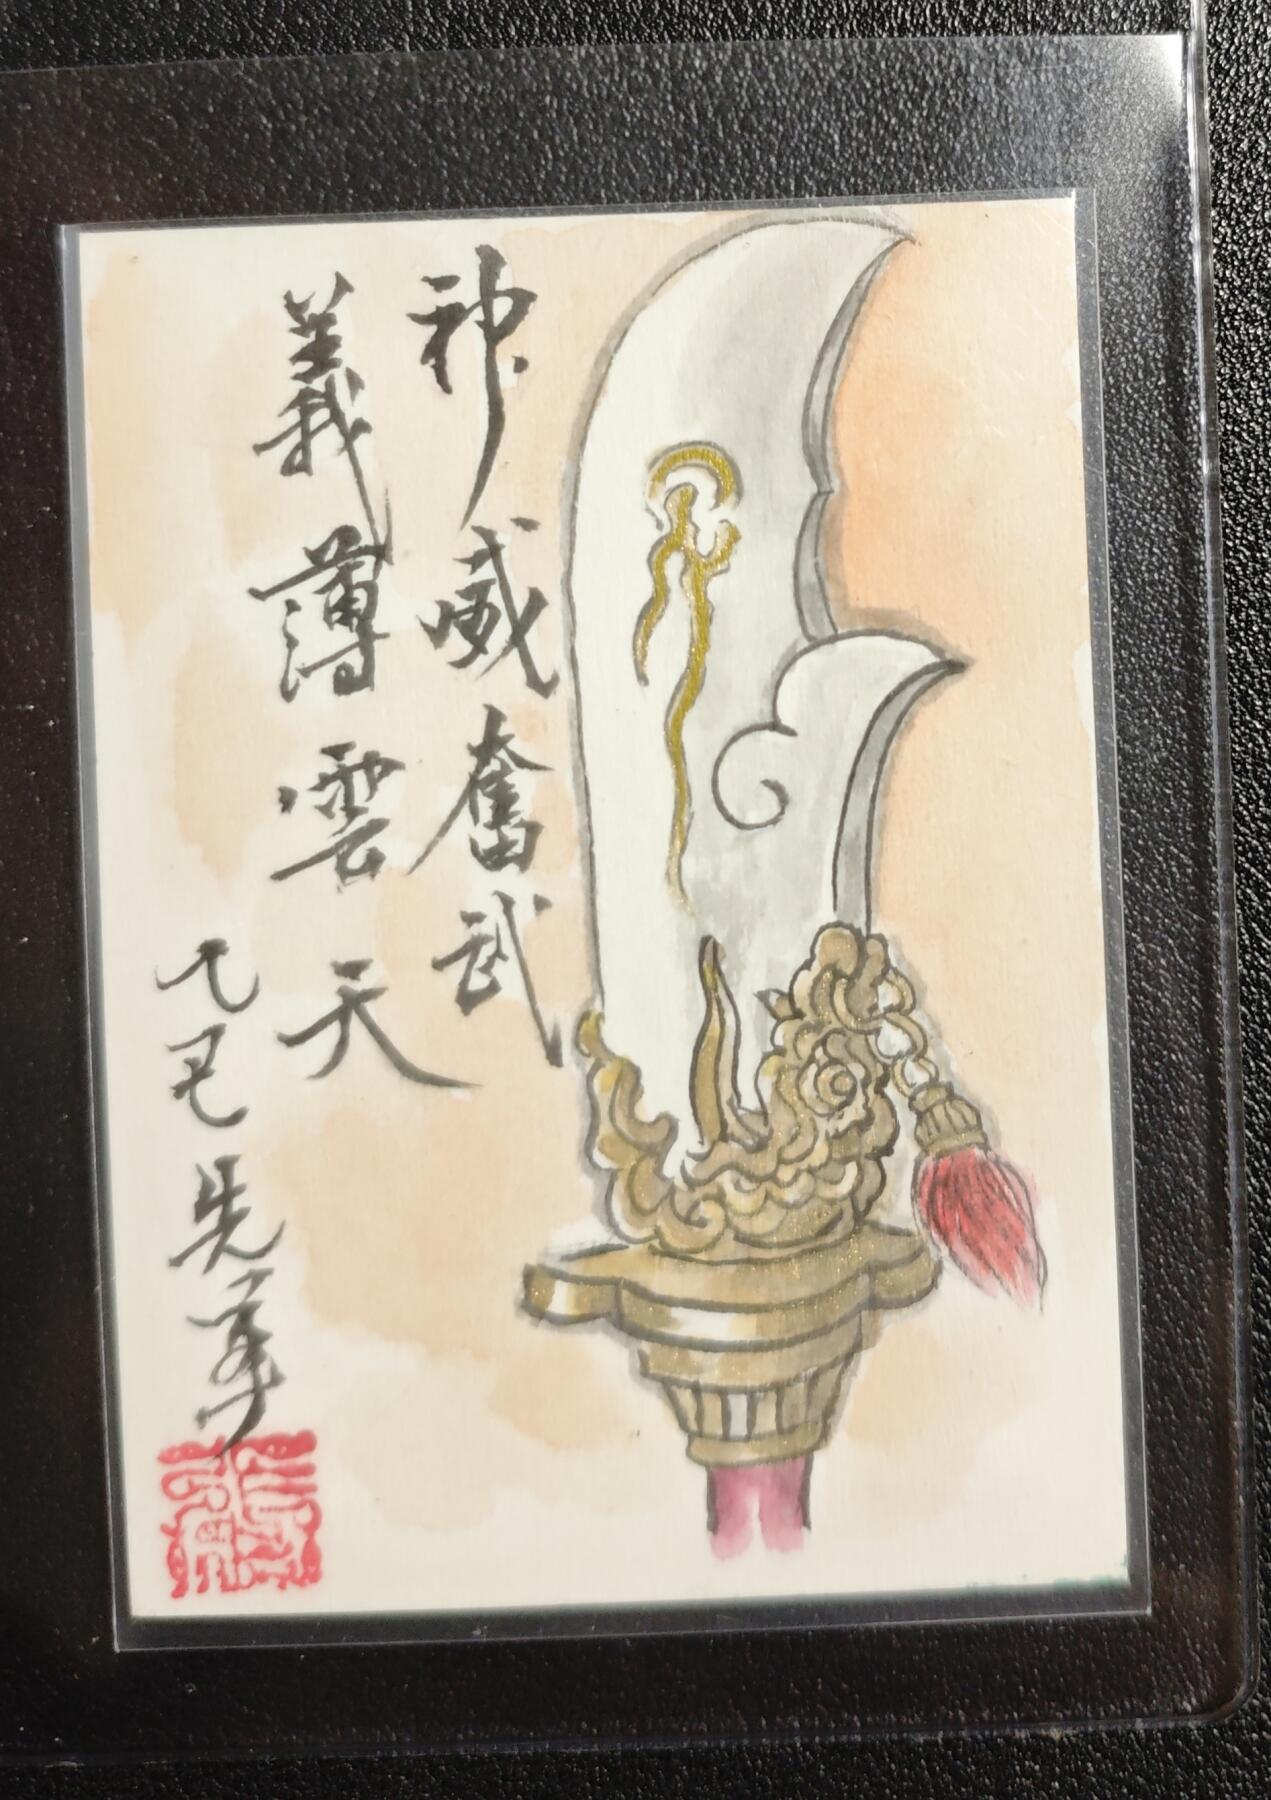 神威奮武
義薄雲天
乙巳先筆